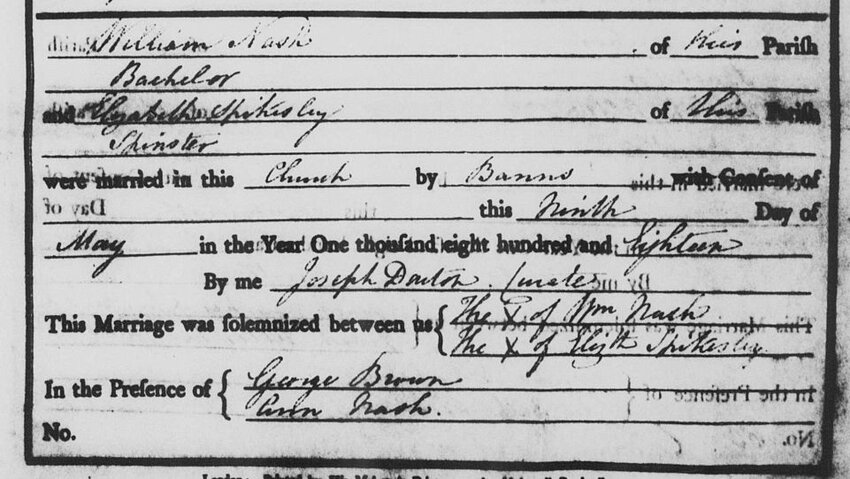 William Nash of this Pariſh
Bachelor
and Elizabeth Spikesley of this Pariſh
Spinster
were married in this Church by Banns with Conſent of
this Ninth Day of
May in the Year One thouſand eight hundred and Eighteen
By me Joseph Darton Curate
This Marriage was ſolemnized between us { The X of Wm Nash
The X of Elizth Spikesley
In the Preſence of { George Brown
Ann Nash.
No.